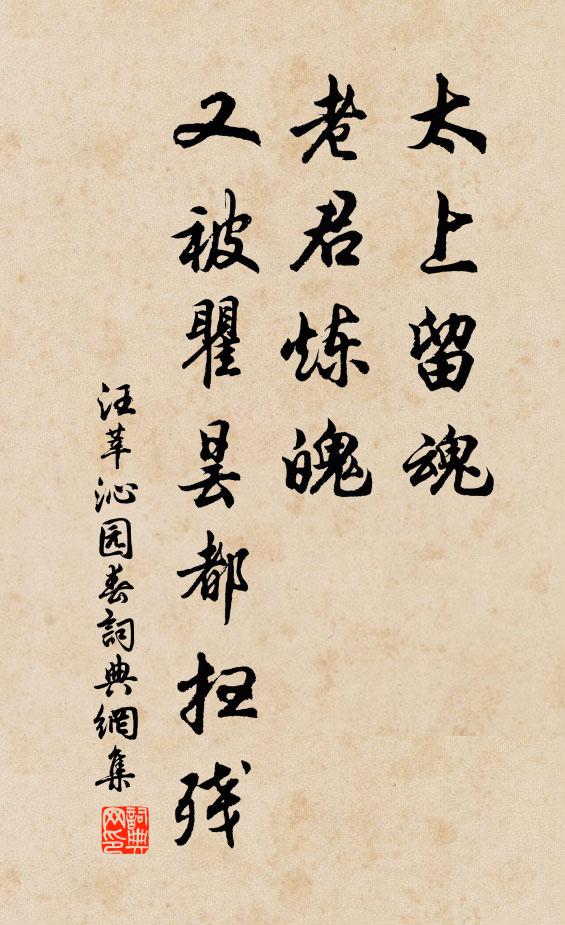 太上留魂
老君炼魄
又被瞿昙都扭残
汪莘沁园春詞典網集
詞典网印